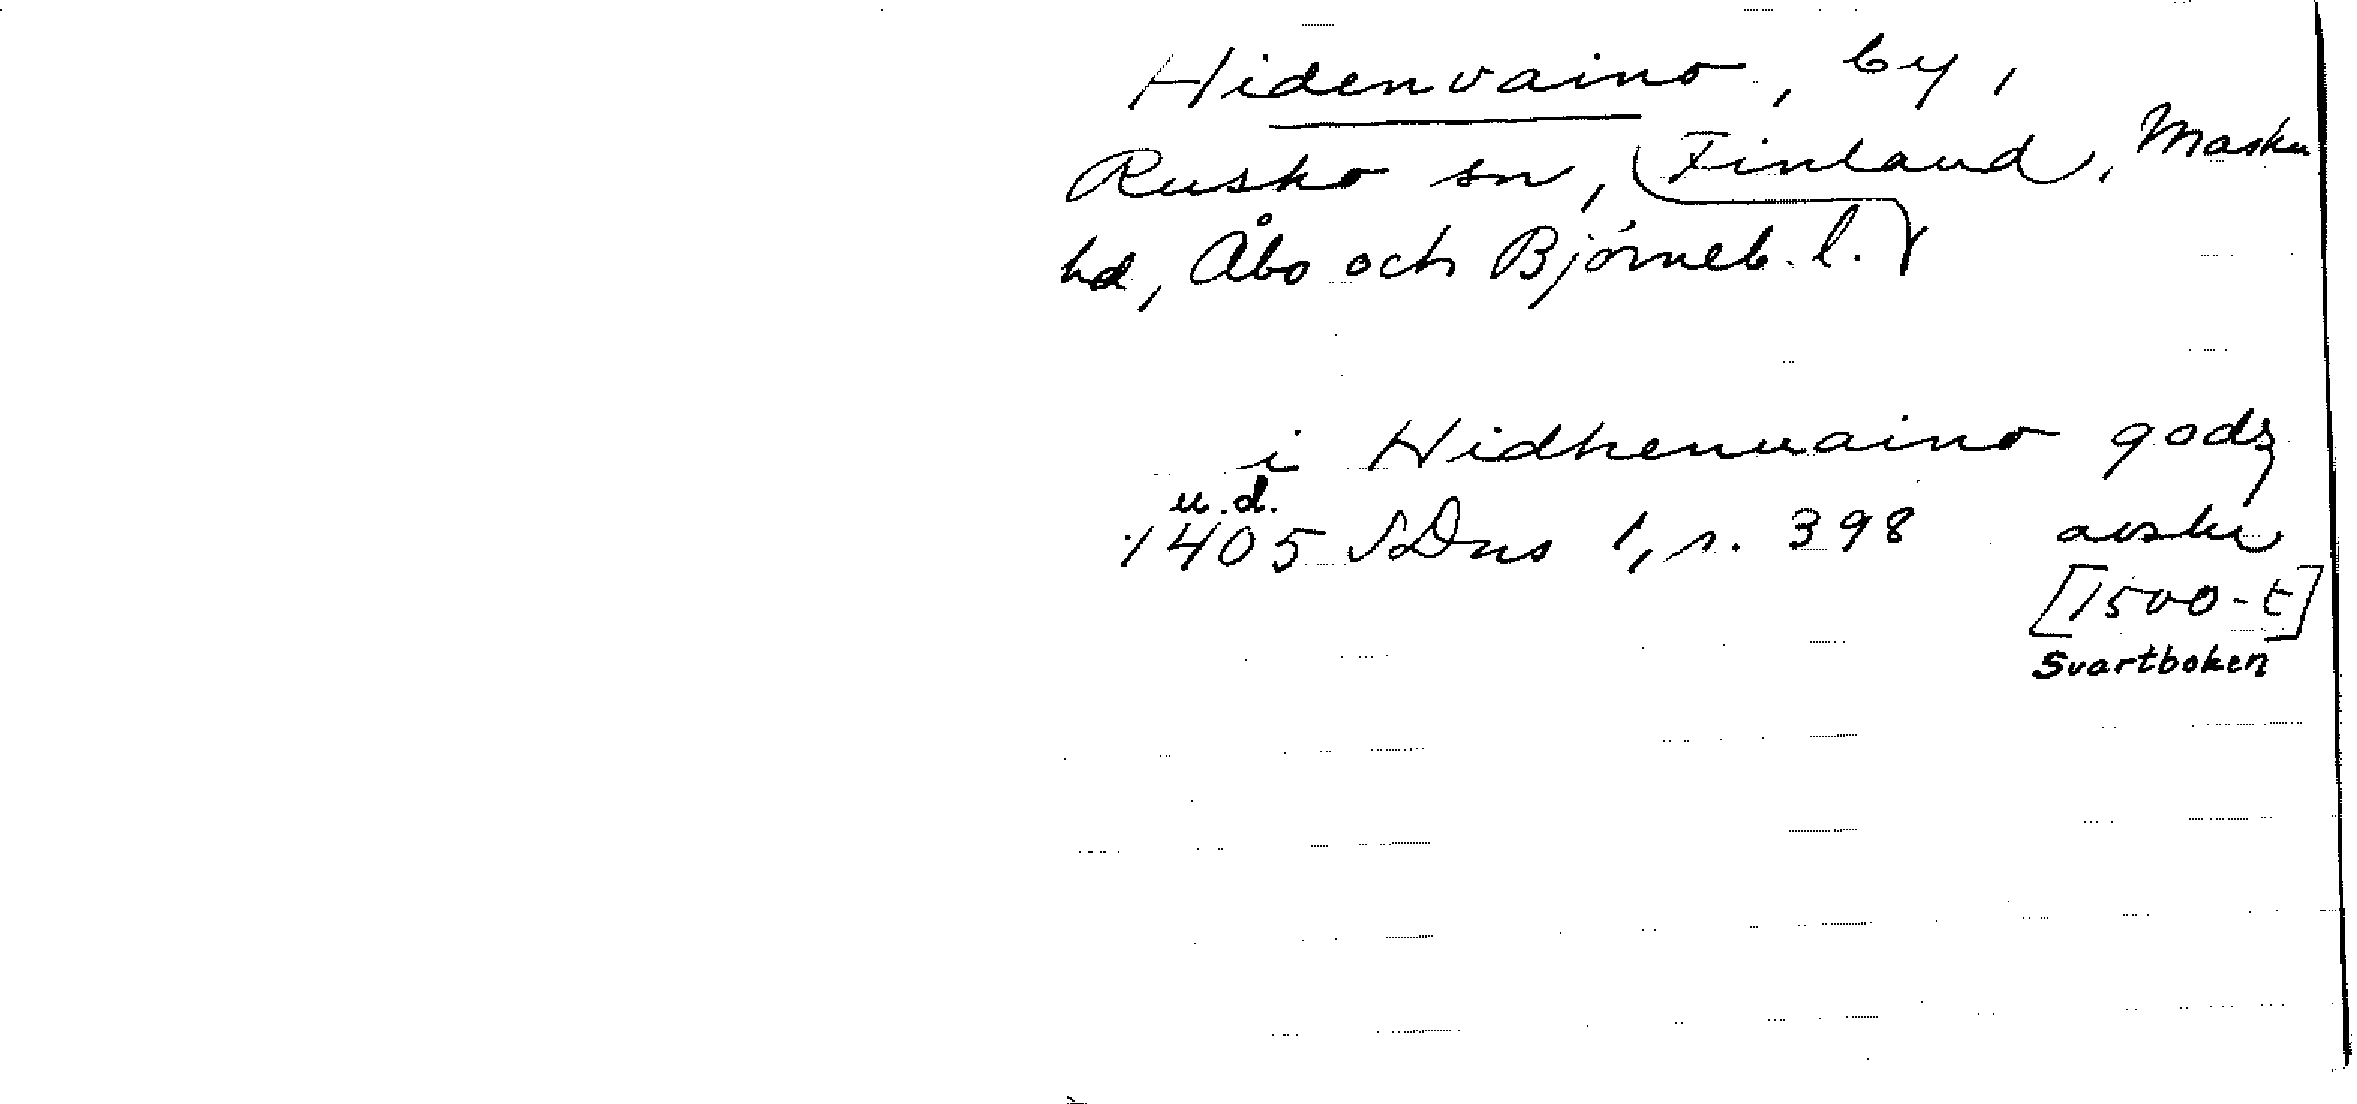 Hidenvaino, by,
Rusko sn, Finland, Masku
hd, Åbo och Björneb. l.
i Hidhenuaino godz
u.d.
1405 SDns 1, s. 398 avskr
[1500-t]
Svartboken